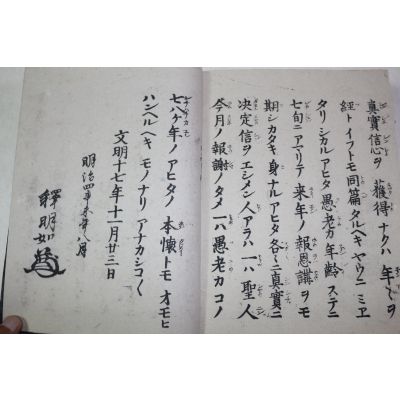 眞實信心ヲ獲得ナクハ年々ヲ
經トイフトモ同篇タルヘキヤウニミエ
タリシカルアヒタ愚老カ年齡ステニ
七旬ニアマリテ来年ノ報恩講ヲモ
期シカタキ身ナルアヒタ各々ニ眞實ニ
决定信ヲエシメン人アラハ一ハ聖人
今月ノ報謝ノタメ一ハ愚老カコノ
七八ケ年ノアヒタノ本懐トモオモヒ
ハンヘルヘキモノナリアナカシコ〱
文明十七年十一月廿三日
明治四年辛未八月
釋明如